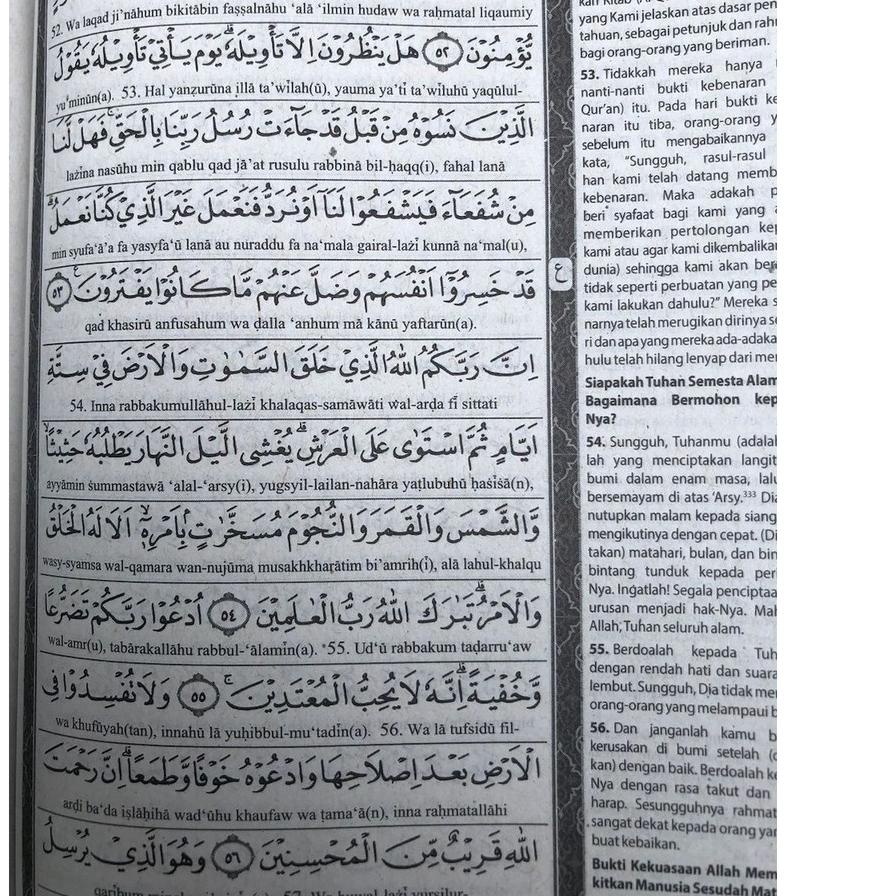 52. Wa laqad ji'nāhum bikitābin faṣṣalnāhu 'alā 'ilmin hudaw wa raḥmatal liqaumiy
يُّؤْمِنُوْنَ ۝٥٢ هَلْ يَنْظُرُوْنَ اِلَّا تَأْوِيْلَهٗۗ يَوْمَ يَأْتِيْ تَأْوِيْلُهٗ يَقُوْلُ
yu'minūn(a). 53. Hal yanẓurūna illā ta'wīlah(ū), yauma ya'tī ta'wīluhū yaqūlul-
الَّذِيْنَ نَسُوْهُ مِنْ قَبْلُ قَدْ جَاۤءَتْ رُسُلُ رَبِّنَا بِالْحَقِّۚ فَهَلْ لَّنَا
lażīna nasūhu min qablu qad jā'at rusulu rabbinā bil-ḥaqq(i), fahal lanā
مِنْ شُفَعَاۤءَ فَيَشْفَعُوْا لَنَآ اَوْ نُرَدُّ فَنَعْمَلَ غَيْرَ الَّذِيْ كُنَّا نَعْمَلُۗ
min syufa'ā'a fa yasyfa'ū lanā au nuraddu fa na'mala gairal-lażī kunnā na'mal(u),
قَدْ خَسِرُوْٓا اَنْفُسَهُمْ وَضَلَّ عَنْهُمْ مَّا كَانُوْا يَفْتَرُوْنَ ࣖ ۝٥٣
qad khasirū anfusahum wa ḍalla 'anhum mā kānū yaftarūn(a).
اِنَّ رَبَّكُمُ اللّٰهُ الَّذِيْ خَلَقَ السَّمٰوٰتِ وَالْاَرْضَ فِيْ سِتَّةِ
54. Inna rabbakumullāhul-lażī khalaqas-samāwāti wal-arḍa fī sittati
اَيَّامٍ ثُمَّ اسْتَوٰى عَلَى الْعَرْشِۗ يُغْشِى الَّيْلَ النَّهَارَ يَطْلُبُهٗ حَثِيْثًاۙ
ayyāmin ṡummastawā 'alal-'arsy(i), yugsyil-lailan-nahāra yaṭlubuhū ḥaṡīṡā(n),
وَّالشَّمْسَ وَالْقَمَرَ وَالنُّجُوْمَ مُسَخَّرٰتٍۢ بِاَمْرِهٖٓۙ اَلَا لَهُ الْخَلْقُ
wasy-syamsa wal-qamara wan-nujūma musakhkharātim bi'amrih(ī), alā lahul-khalqu
وَالْاَمْرُۗ تَبٰرَكَ اللّٰهُ رَبُّ الْعٰلَمِيْنَ ۝٥٤ اُدْعُوْا رَبَّكُمْ تَضَرُّعًا
wal-amr(u), tabārakallāhu rabbul-'ālamīn(a). 55. Ud'ū rabbakum taḍarru'aw
وَّخُفْيَةًۗ اِنَّهٗ لَا يُحِبُّ الْمُعْتَدِيْنَۚ ۝٥٥ وَلَا تُفْسِدُوْا فِى
wa khufyah(tan), innahū lā yuḥibbul-mu'tadīn(a). 56. Wa lā tufsidū fil-
الْاَرْضِ بَعْدَ اِصْلَاحِهَا وَادْعُوْهُ خَوْفًا وَّطَمَعًاۗ اِنَّ رَحْمَتَ
arḍi ba'da iṣlāḥihā wad'ūhu khaufaw wa ṭama'ā(n), inna raḥmatallāhi
اللّٰهِ قَرِيْبٌ مِّنَ الْمُحْسِنِيْنَ ۝٥٦ وَهُوَ الَّذِيْ يُرْسِلُ
ع
yang Kami jelaskan atas dasar
tahuan, sebagai petunjuk dan
bagi orang-orang yang beriman.
53. Tidakkah mereka hanya
nanti-nanti bukti kebenaran
Qur'an) itu. Pada hari bukti
naran itu tiba, orang-orang
sebelum itu mengabaikannya
kata, "Sungguh, rasul-rasul
han kami telah datang
kebenaran. Maka adakah
beri syafaat bagi kami yang
memberikan pertolongan
kami atau agar kami
dunia) sehingga kami akan
tidak seperti perbuatan yang
kami lakukan dahulu?" Mereka
narnya telah merugikan dirinya
ri dan apa yang mereka
hulu telah hilang lenyap dari
Siapakah Tuhan Semesta
Bagaimana Bermohon
Nya?
54. Sungguh, Tuhanmu
lah yang menciptakan
bumi dalam enam masa,
bersemayam di atas 'Arsy.³³³
nutupkan malam kepada
mengikutinya dengan cepat.
takan) matahari, bulan, dan
bintang tunduk kepada
Nya. Ingatlah! Segala
urusan menjadi hak-Nya.
Allah, Tuhan seluruh alam.
55. Berdoalah kepada
dengan rendah hati dan
lembut. Sungguh, Dia tidak
orang-orang yang melampaui
56. Dan janganlah kamu
kerusakan di bumi setelah
kan) dengan baik. Berdoalah
Nya dengan rasa takut dan
harap. Sesungguhnya
sangat dekat kepada orang
buat kebaikan.
Bukti Kekuasaan Allah
kitkan Manusia Sesudah